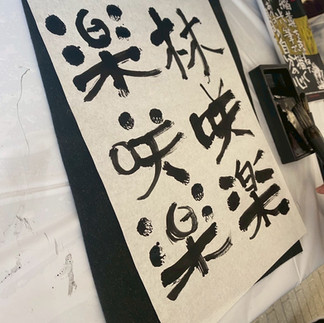 林咲楽
楽咲楽